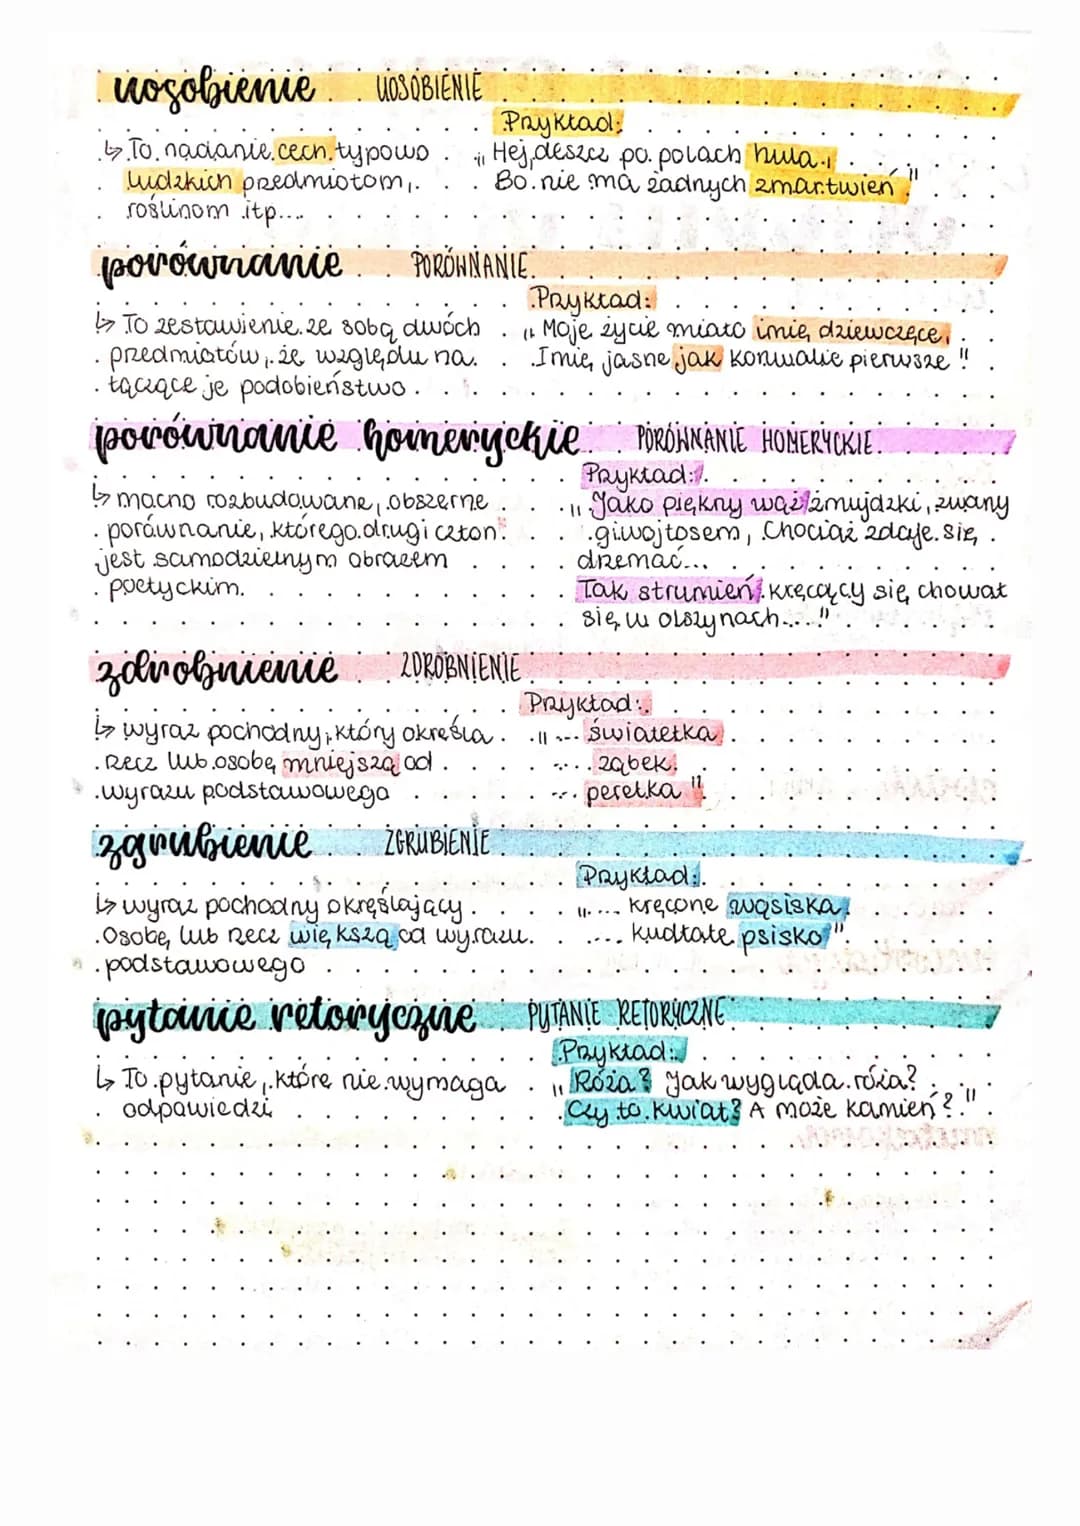 uosobienie UOSOBIENIE
Przykład:
↳ To nadanie cech typowo
ludzkich przedmiotom,
roślinom itp...
„Hej, deszcz po polach hula,
Bo nie ma żadnych zmartwień."
porównanie PORÓWNANIE
Przykład:
↳ To zestawienie ze sobą dwóch
przedmiotów, ze względu na
łączące je podobieństwo.
„Moje życie miało imię dziewczęce,
Imię jasne jak konwalie pierwsze"
porównanie homeryckie PORÓWNANIE HOMERYCKIE
Przykład:
↳ mocno rozbudowane, obszerne
porównanie, którego drugi człon
jest samodzielnym obrazem
poetyckim.
„Jako piękny wąż żmujdzki, zwany
giwojtosem, Chociaż zdaje się
drzemać...
Tak strumień kręcący się chował
się w olszynach...."
zdrobnienie ZDROBNIENIE
Przykład:
↳ wyraz pochodny, który określa
rzecz lub osobę mniejszą od
wyrazu podstawowego
„... światełka
... ząbek
... perełka"
zgrubienie ZGRUBIENIE
Przykład:
↳ wyraz pochodny określający
Osobę lub rzecz większą od wyrazu
podstawowego
„... kręcone wąsiska,
... kudłate psisko"
pytanie retoryczne PYTANIE RETORYCZNE
Przykład:
↳ To pytanie, które nie wymaga
odpowiedzi
„Róża? Jak wygląda róża?
Czy to kwiat? A może kamień?"